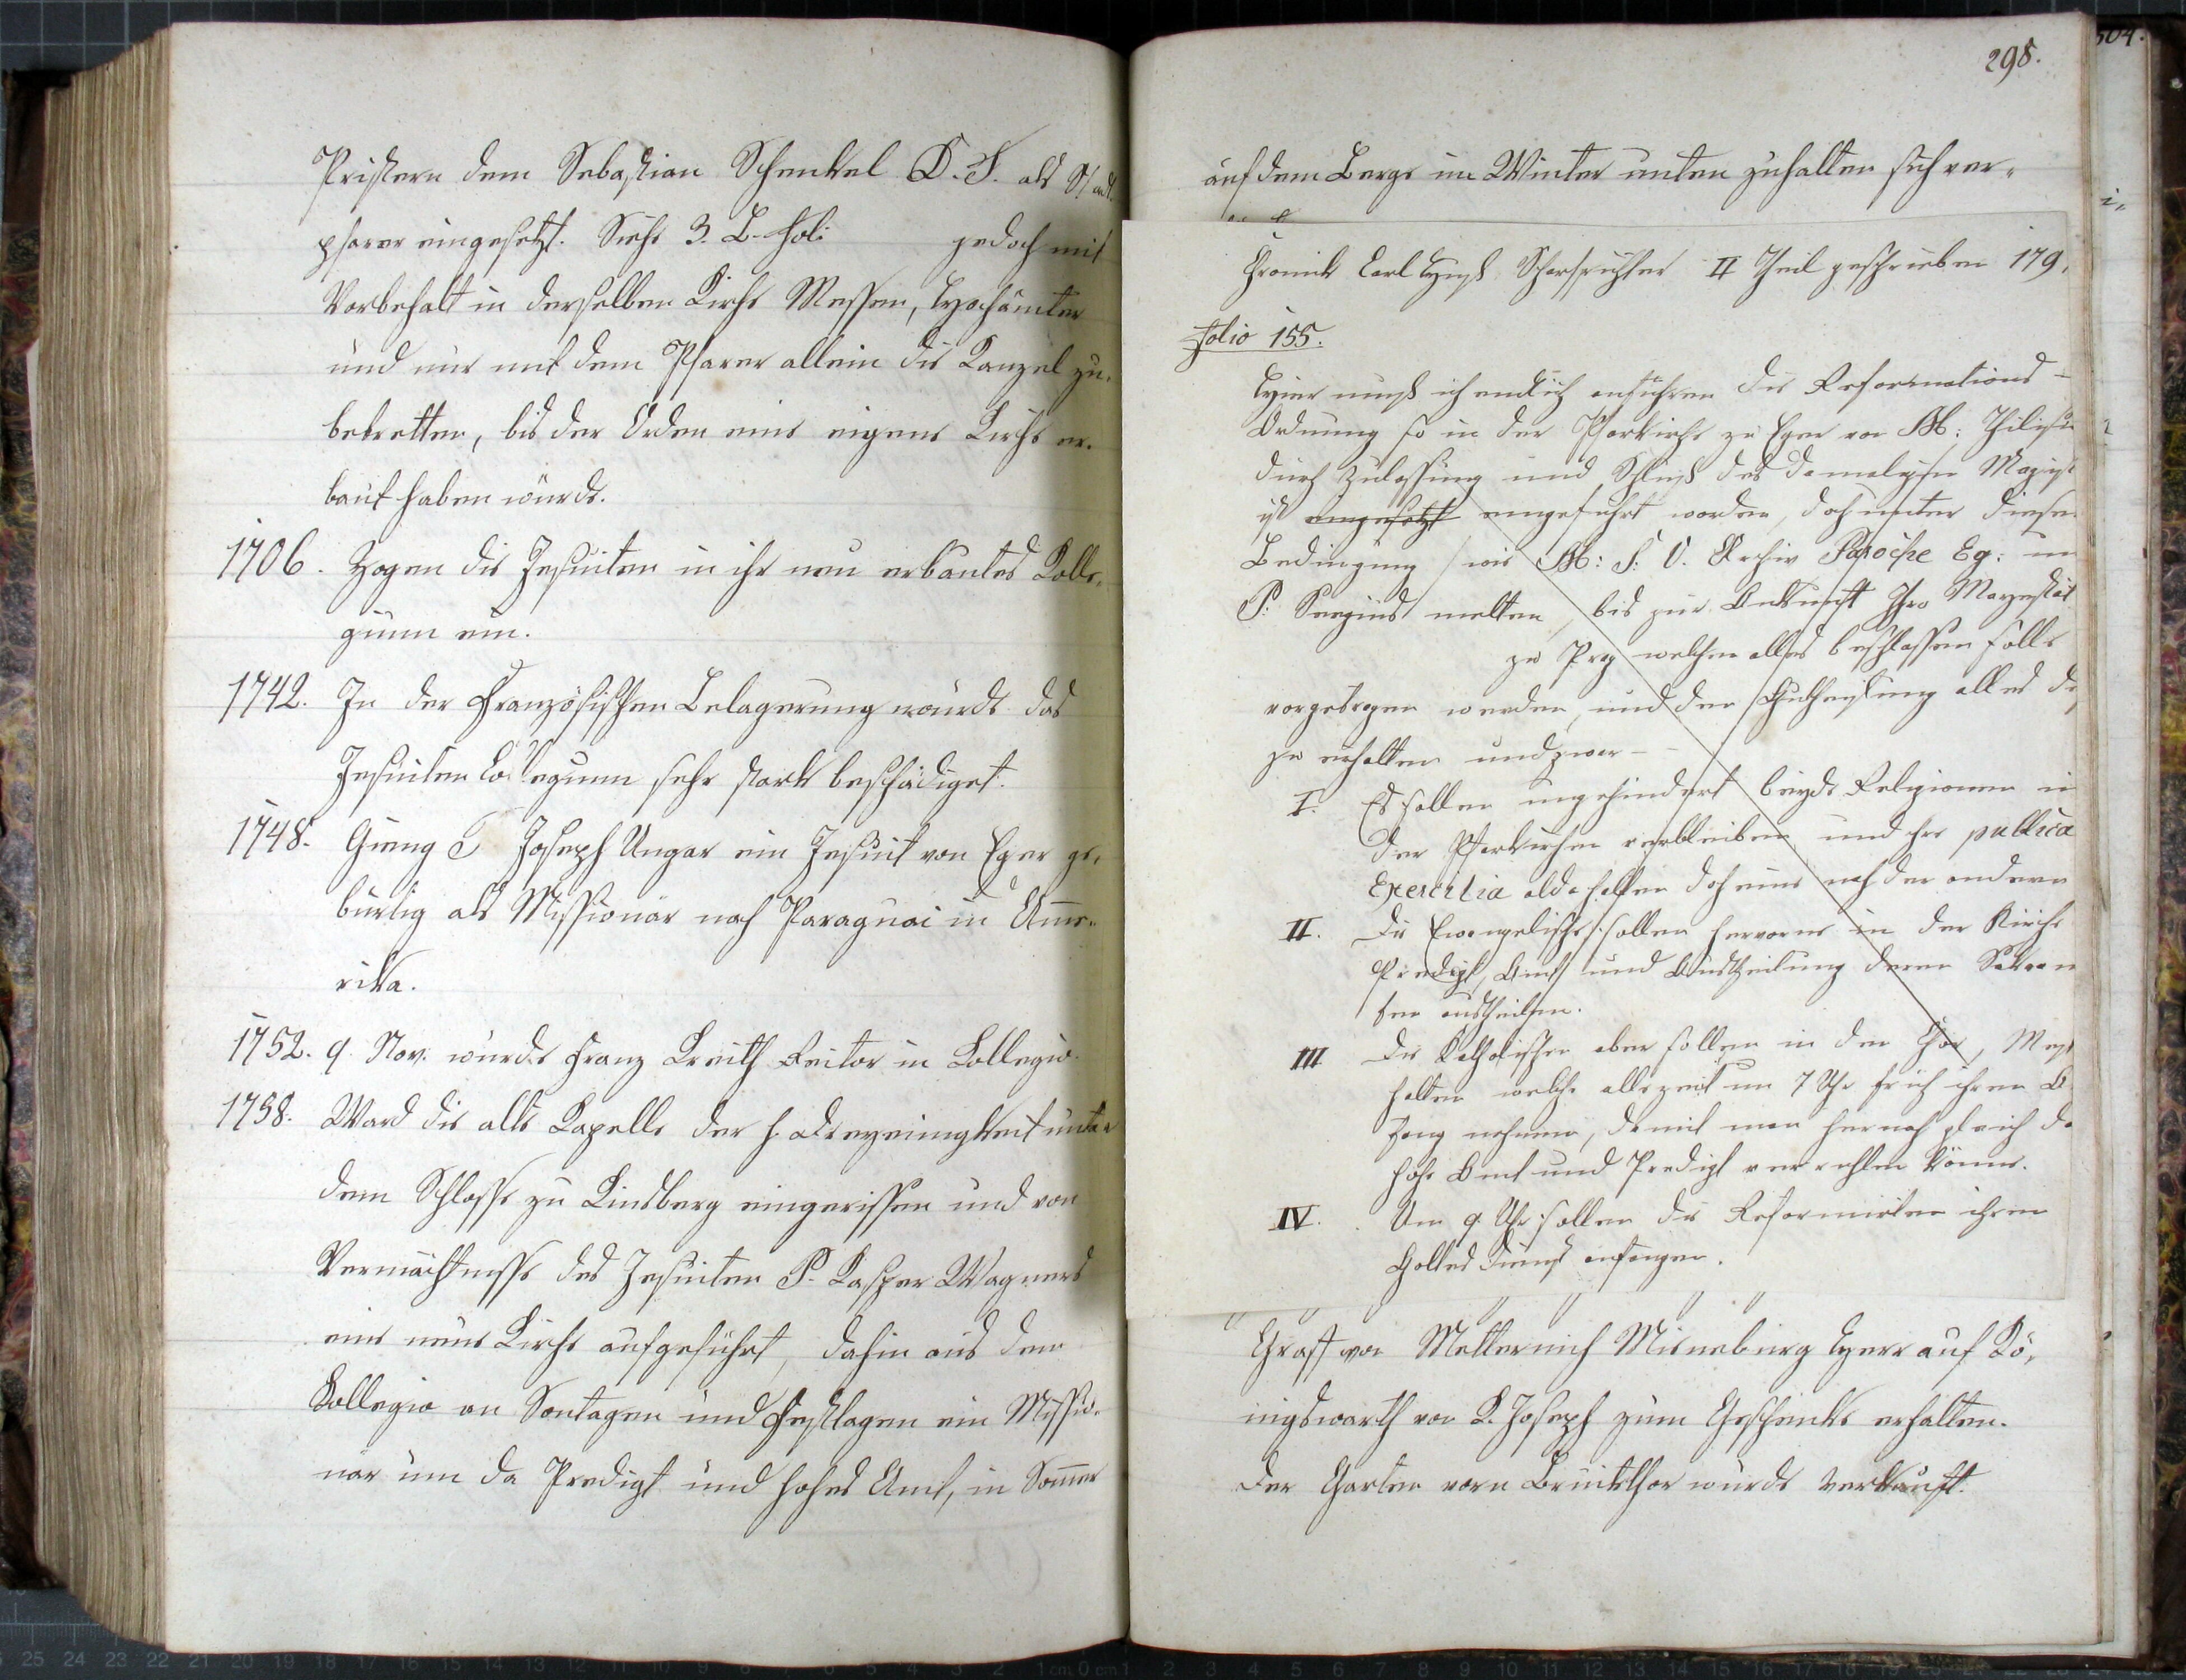 Pristern dem Sebastian Schenkel D. T. als Stadt
pfarer eingesetzt. Siehe 3. B. fol: jedoch mit
Vorbehalt in derselben Kirche Messen, Hochämter
und nur mit dem Pfarer allein die Kanzel zu
betretten, bis der Orden eine eigene Kirche er-
baut haben würde.
1706. Zogen die Jesuiten in ihr neu erbautes Kolle-
gium ein.
1742. In der Französischen Belagerung wurde das
Jesuiten Collegium sehr stark beschädiget.
1748. Gieng P Joseph Ungar ein Jesuit von Eger ge-
bürtig als Missionär nach Paraguai in Ame-
rika.
1752. 9. Nov. wurde Franz Rector in Collegio
1758. Ward die alte Kapelle der h. Dreyeinigkeit unter
dem Schlosse zu Kinsberg eingerissen und von
Vermächtnisse des Jesuiten P. Kasper Wagners
eine neue Kirche aufgeführt, dahin aus dem
Collegio an Sontagen und Festtagen ein Missio-
när um da Predigt und hohes Amt, in Sommer
298.
504.
auf dem Berge im Winter unten zuhalten sich ver-
Chronik Carl Huß Scharfrichter II Theil geschrieben 179
folio 155.
Hier muß ich endlich anführen die Reformations-
Ordnung so in der Pfarkirche zu Eger von M:
durch Zulassung und Schluß des damaligen Magist
ist eingesetzt eingeführt worden, doch unter diesen
Bedingung / wie M: S: V. Archiv Paroche Eg: un
P. Sergius melten, bis zur Ankunft Ihro Mayestät
zu Prag welchen alles beschlossen solle
vorgetragen werden, und der Gutheisung alles de
zu erhalten und zwar - -
I. Es sollen ungehindert beyde Religionen in
der Pfarkirchen verbleiben und ihre publica
Exercitia alda halten doch eine nach der andern
II. Die Evangelische sollen hervorne in der Kirche
Predigt, Amt und Austheilung deren Sakram
ten austheilen.
III Die Katholischen aber sollen in den Chor, Meß
halten welche allezeit um 7 Uhr früh ihren A
fang nehmen, damit man hernach gleich da
hohe Amt und Predigt verrichten könne.
IV. Um 9. Uhr sollen die Reformirten ihren
Gottes dienst anfangen.
Graff von Metternich Winneburg Herr auf Kö-
nigswarth von K. Joseph zum Geschenke erhalten.
der Garten vorn Bruckthor wurde verkauft.